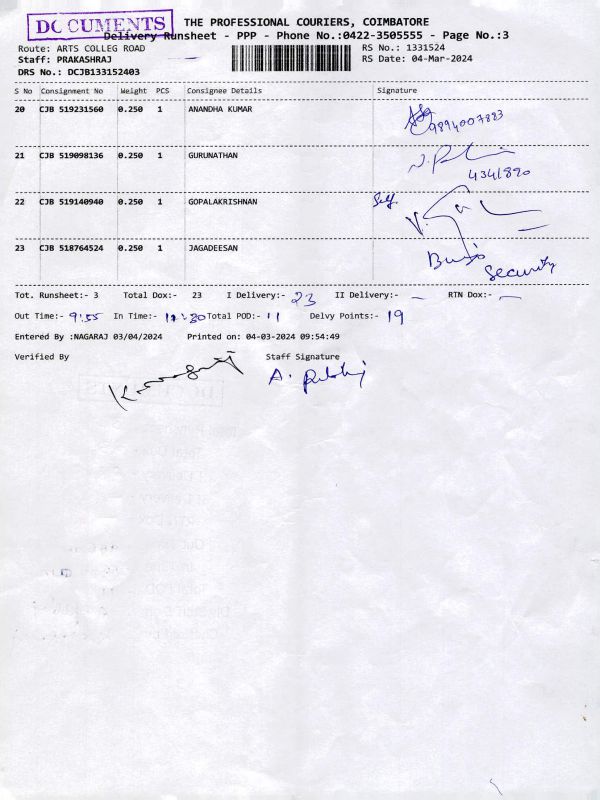 DOCUMENTS
THE PROFESSIONAL COURIERS, COIMBATORE
Delivery Runsheet - PPP - Phone No.:0422-3505555 - Page No.:3
Route: ARTS COLLEG ROAD RS No.: 1331524
Staff: PRAKASHRAJ RS Date: 04-Mar-2024
DRS No.: DCJB133152403
S No Consignment No Weight PCS Consignee Details Signature
20 CJB 519231560 0.250 1 ANANDHA KUMAR 9894007883
21 CJB 519098136 0.250 1 GURUNATHAN
4341890
22 CJB 519140940 0.250 1 GOPALAKRISHNAN Self
23 CJB 518764524 0.250 1 JAGADEESAN
Security
Tot. Runsheet:- 3 Total Dox:- 23 I Delivery:- 23 II Delivery:- — RTN Dox:- —
Out Time:- 9:55 In Time:- Total POD:- 11 Delvy Points:- 19
Entered By :NAGARAJ 03/04/2024 Printed on: 04-03-2024 09:54:49
Verified By Staff Signature